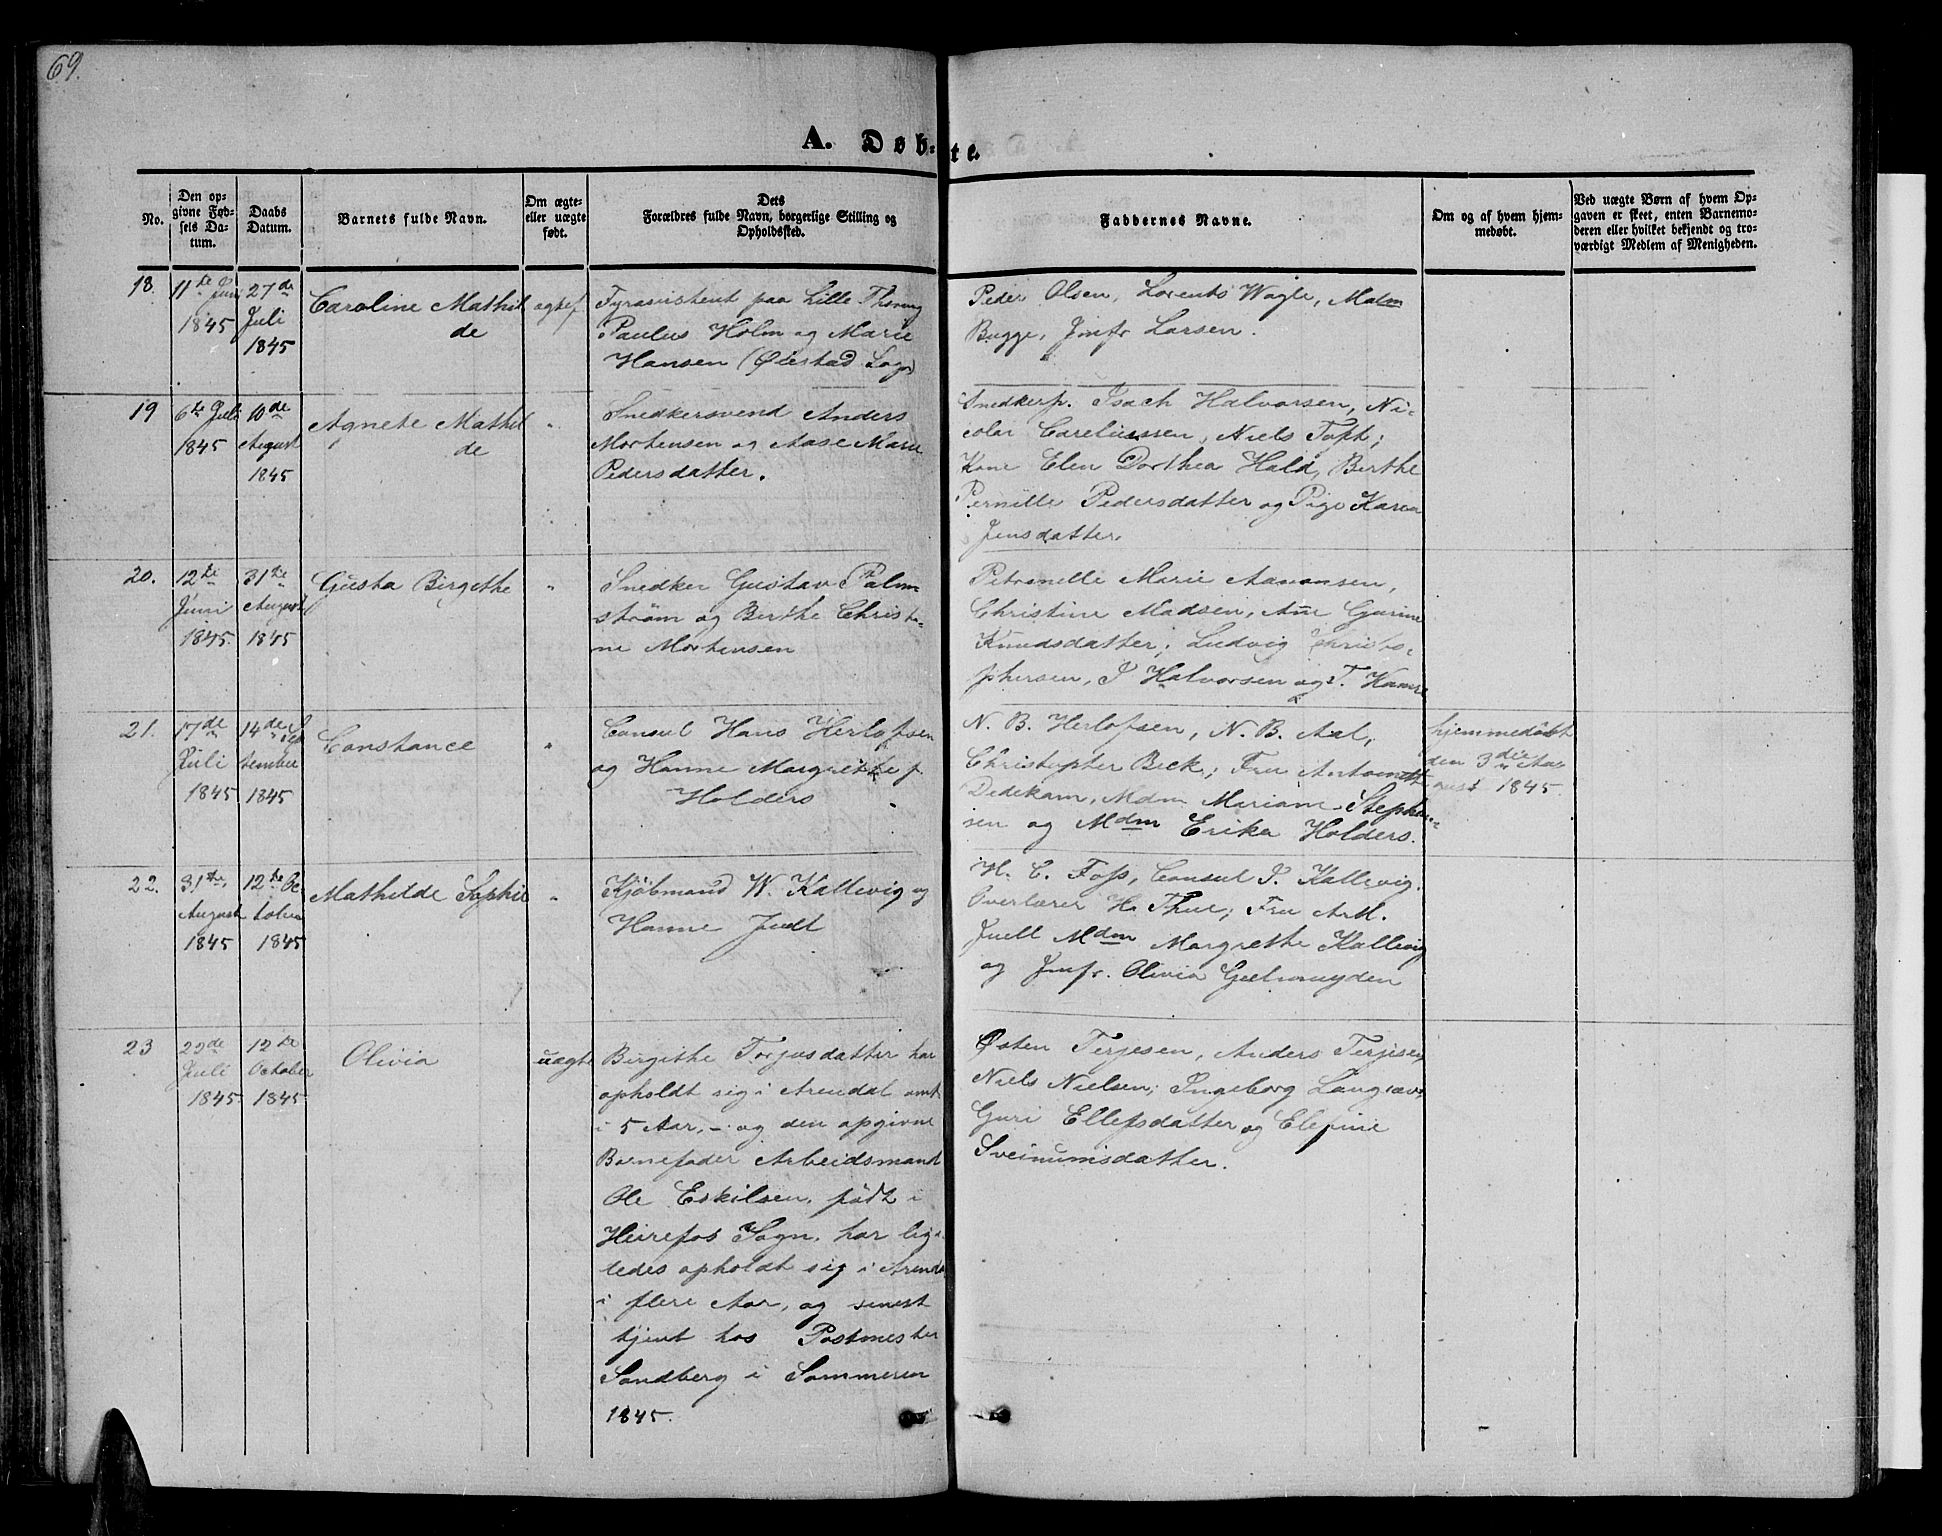 69.
A. Døb-te.
No.
Den op-
givne Fød-
sels Da-
tum.
Daabs
Datum.
Barnets fulde Navn.
Om ægte-
eller uægte
født.
Dets
Forældres fulde Navn, borgerlige Stilling og
Opholdssted.
Faddernes Navne.
Om og af hvem hjem-
medøbt.
Ved uægte Børn af hvem Op-
gaven er skeet, enten Barnemo-
deren eller hvilket bekjendt og tro-
værdigt Medlem af Menigheden.
18.
11te Juni
1845
27de
Juli
1845
Caroline Mathil
de
Fyrassistent paa Lille Thorung
Paulus Holm og Marie
Hansen (Øiestad Sogn
Peder Olsen, Lorents Wagle, Madm
Bugge, Jmfr Larsen.
19
6te Juli
1845
10de
August
1845
Agnete Mathil
de
"
Snedkersvend Anders
Mortensen og Aase Marie
Pedersdatter.
Snedkersv. Isach Halvorsen, Ni-
colai Careliussen, Niels Toft;
Kone Elen Dorthea Hald, Berthe
Pernille Pedersdatter og Pige Karen
Jensdatter.
20.
12te
Juni
1845.
31te
August
1845
Gusta Birgethe
"
Snedker Gustav Palm
strøm og Berthe Christi-
ne Mortensen
Petronelle Marie Aanonsen,
Christine Madsen, Ane Gurine
Knudsdatter; Ludvig Christo-
phersen, I Halvorsen og T. Kamre
21.
17de
Juli
1845
14de Sep
tember
1845
Constance
"
Consul Hans Herlofsen
og Hanne Margrethe f.
Holders
N. B. Herlofsen, N. B. Aal,
Christopher Beck; Fru Antonette
Dedekam, Mdm Mariane Stephan-
sen og Mdm Erika Holders.
hjemmedøbt
den 3die Au
gust 1845.
22.
31te
August
1845
12te Oc
tober
1845
Mathilde Sophie
"
Kjøbmand W. Kallevig og
Hanne Juell
H. C. Foss, Consul I. Kallevig.
Overlærer H. Thue; Fru
Juell Mdm Margrethe Kallevig
og Jmfr. Olivia Geelmuyden
23
29de
Juli
1845.
12te
October
1845
Olivia
uægte
Birgithe Torjusdatter har
opholdt sig i Arendal omt
i 5 Aar, - og den opgivne
Barnefader Arbeidsmand
Ole Eskilsen, født i
Heirefos Sogn, har lig-
ledes opholdt sig i Arendal
i flere Aar, og senest
tjent hos Postmester
Sandberg i Sommeren
1845.
Østen Terjesen, Anders Terjesen
Niels Nielsen; Ingeborg
Guri Ellefsdatter og Elefine
Sveinumsdatter.